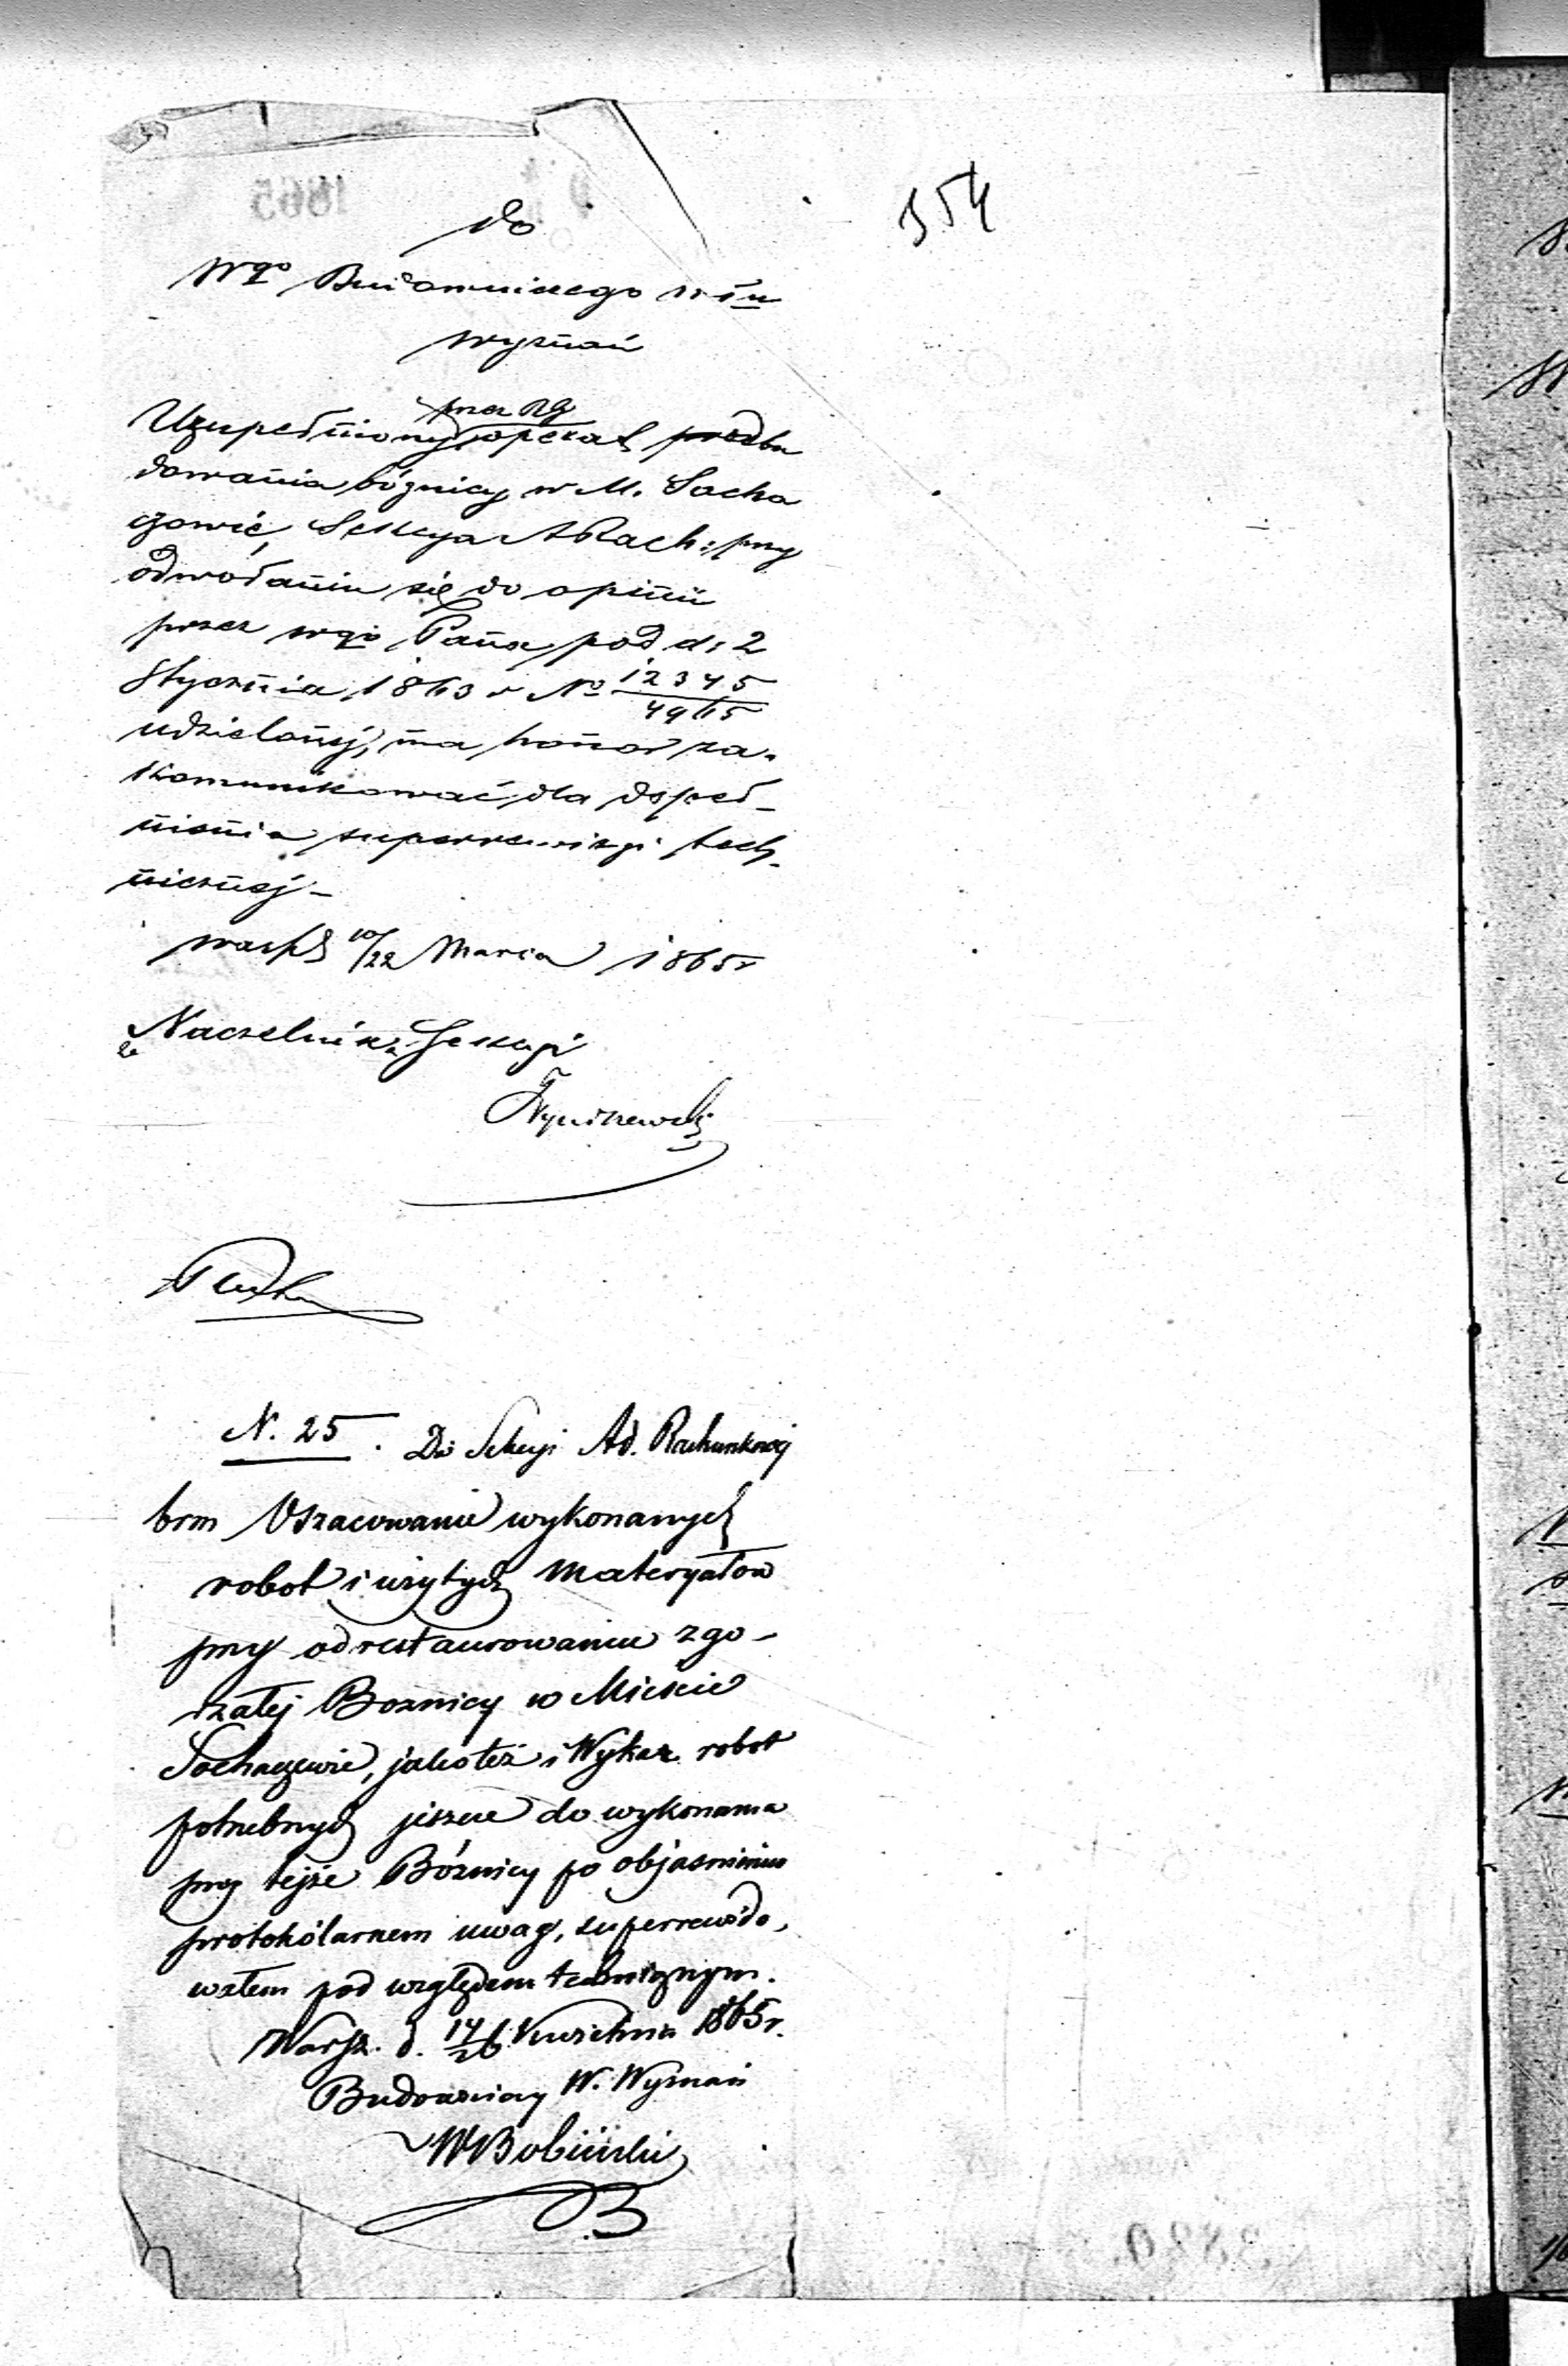 354
do
Wgo Budowniczego w ią
wyznań
przez RG
Uzupełniony operat przebu
dowania bóżnicy w M. Socha
czewie, Sekcya A Rach: przy
odwołaniu się do opinii
przez wgo Pana pod d: 2
Stycznia 1863 r No 12345/4965
udzielonej, ma honor za-
komunikować dla dopeł-
nienia superrewizyi tech-
nicznej –
10/22 Marca 1865 r
Naczelnik Sekcyi
N. 25. Do Sekcyi Ad. Rachunkowej
brm Oszacowanie wykonanych
robot i użytych materyałow
przy odrestaurowaniu zgo-
rzałej Boznicy w Mieście
Sochaczewie, jakoteż i Wykaz robot
potrzebnych jeszcze do wykonania
przy tejże Bóżnicy po objasnieniu
protokólarnem uwag, superrewido-
wałem pod względem technicznym.
Warsz. d. 14/26 Kwietnia 1865 r.
Budowniczy W. Wyznań
WBobiński